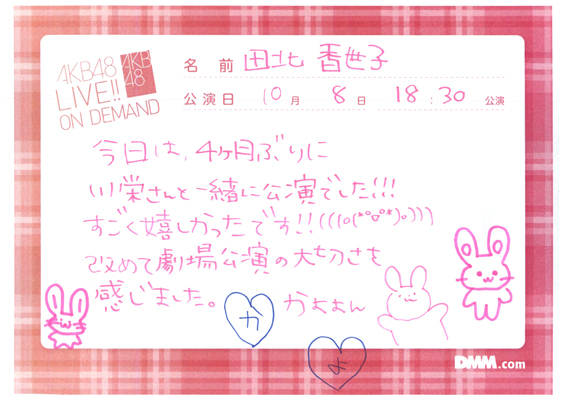 AKB48
LIVE!!
ON DEMAND
AKB
48
名 前 田北 香世子
公演日 10月 8日 18:30 公演
今日は、4ヶ月ぶりに
川栄さんと一緒に公演でした!!!
すごく嬉しかったです!!(((o(*°▽°*)o)))
改めて劇場公演の大切さを
感じました。
かよよん
カ
よ
DMM.com